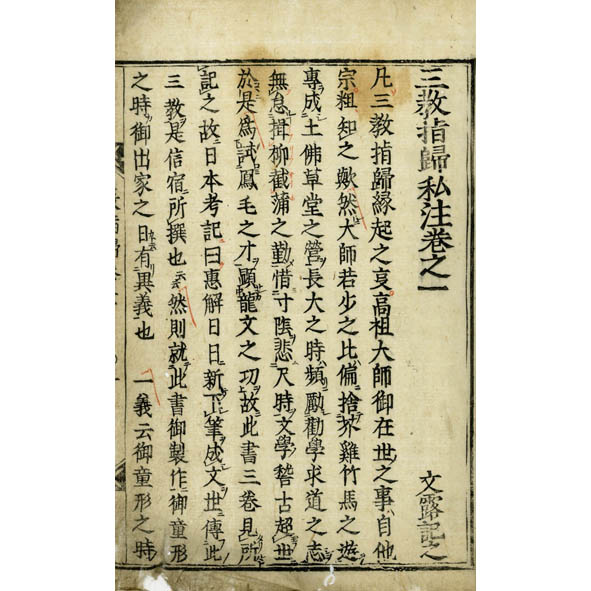 三教指歸私注卷之一
文露記之
凡三教指歸縁起之㕝高祖大師御在世之事自他
宗粗知之歟然大師若少之比偏捨芥雞竹馬之遊
專成土佛草堂之營長大之時頻勵勸學求道之志
無息揖柳截蒲之勤惜寸陰悲尺時文學稽古超世
於是爲試鳳毛之才顕龍文之功故此書三卷見所
記之故日本考記曰惠解日日新下筆成文世傳此
三教是信宿所撰也云云然則就此書御製作御童形
之時御出家之日有異義也 一義云御童形之時